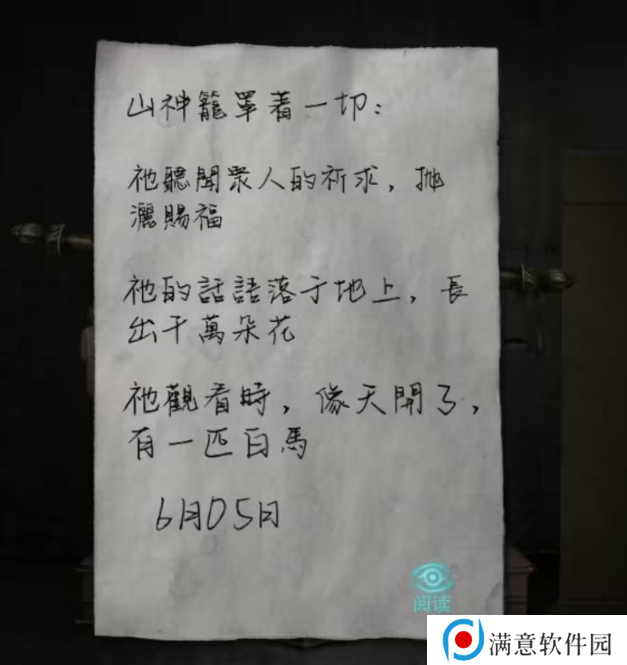 山神籠罩着一切:
祂聽聞眾人的祈求，抛
灑賜福
祂的話語落于地上，長
出千萬朵花
祂觀看時，像天開了，
有一匹白馬
6月05日
阅读
满意软件园